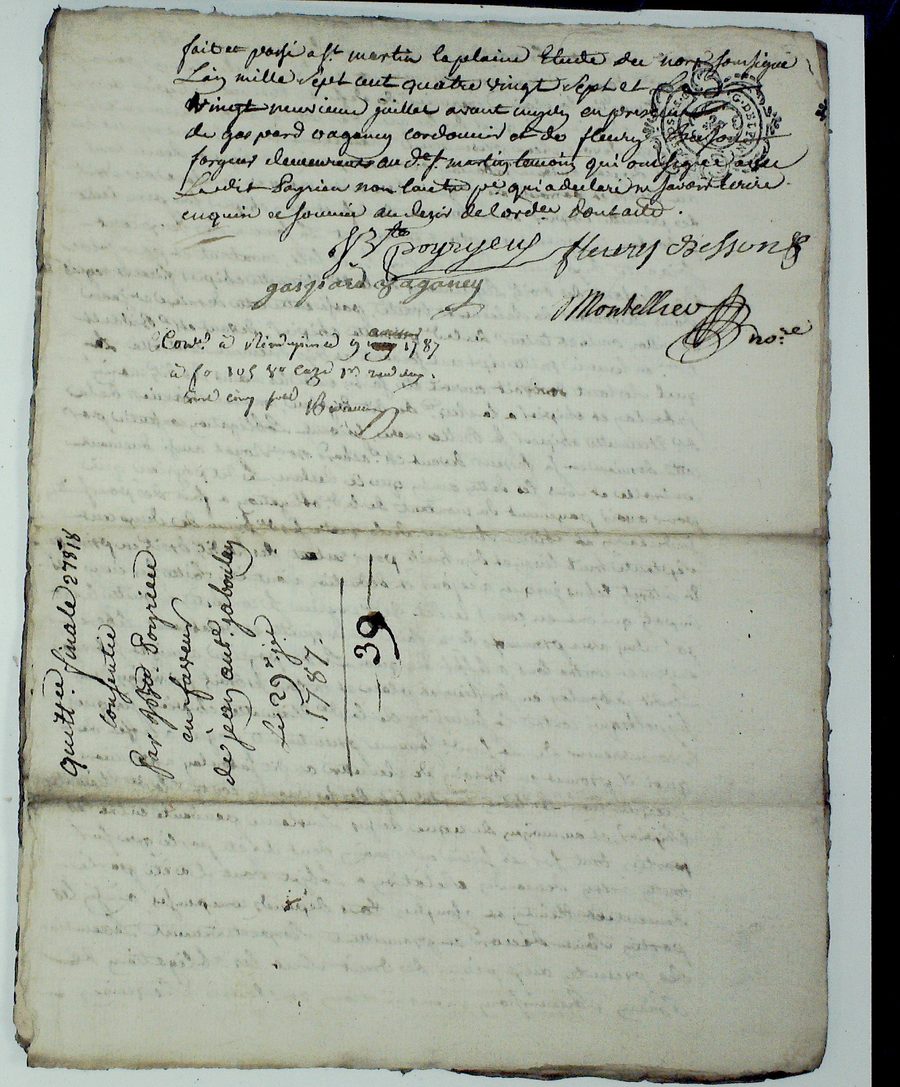 fait et passé a st martin la plaine Etude du nore soussigné
L'an mille sept cent quatre vingt sept et Le
vingt neuvieme juillet avant midy en presence
de gaspard dagancy cordonnier et de fleury Besson
forgeur demeurants au d. st martin temoins qui ont signé avec
Ledit Poyrieu non laditte qui a declaré ne savoir ecrire
enquise et sommée au desir de l'ordce Dont acte.
JBte poyryeux fleury Besson
gaspard dagancy
Montellier nore
Conlé à Rivedegier ce 9 1787
à fo 105 Vo Case 1re
cinq sols
quittce finale 27818
consentie
Par JBte Poyrieu
en faveur
de jean ant. jabouley
Le 29 je
1787.
39